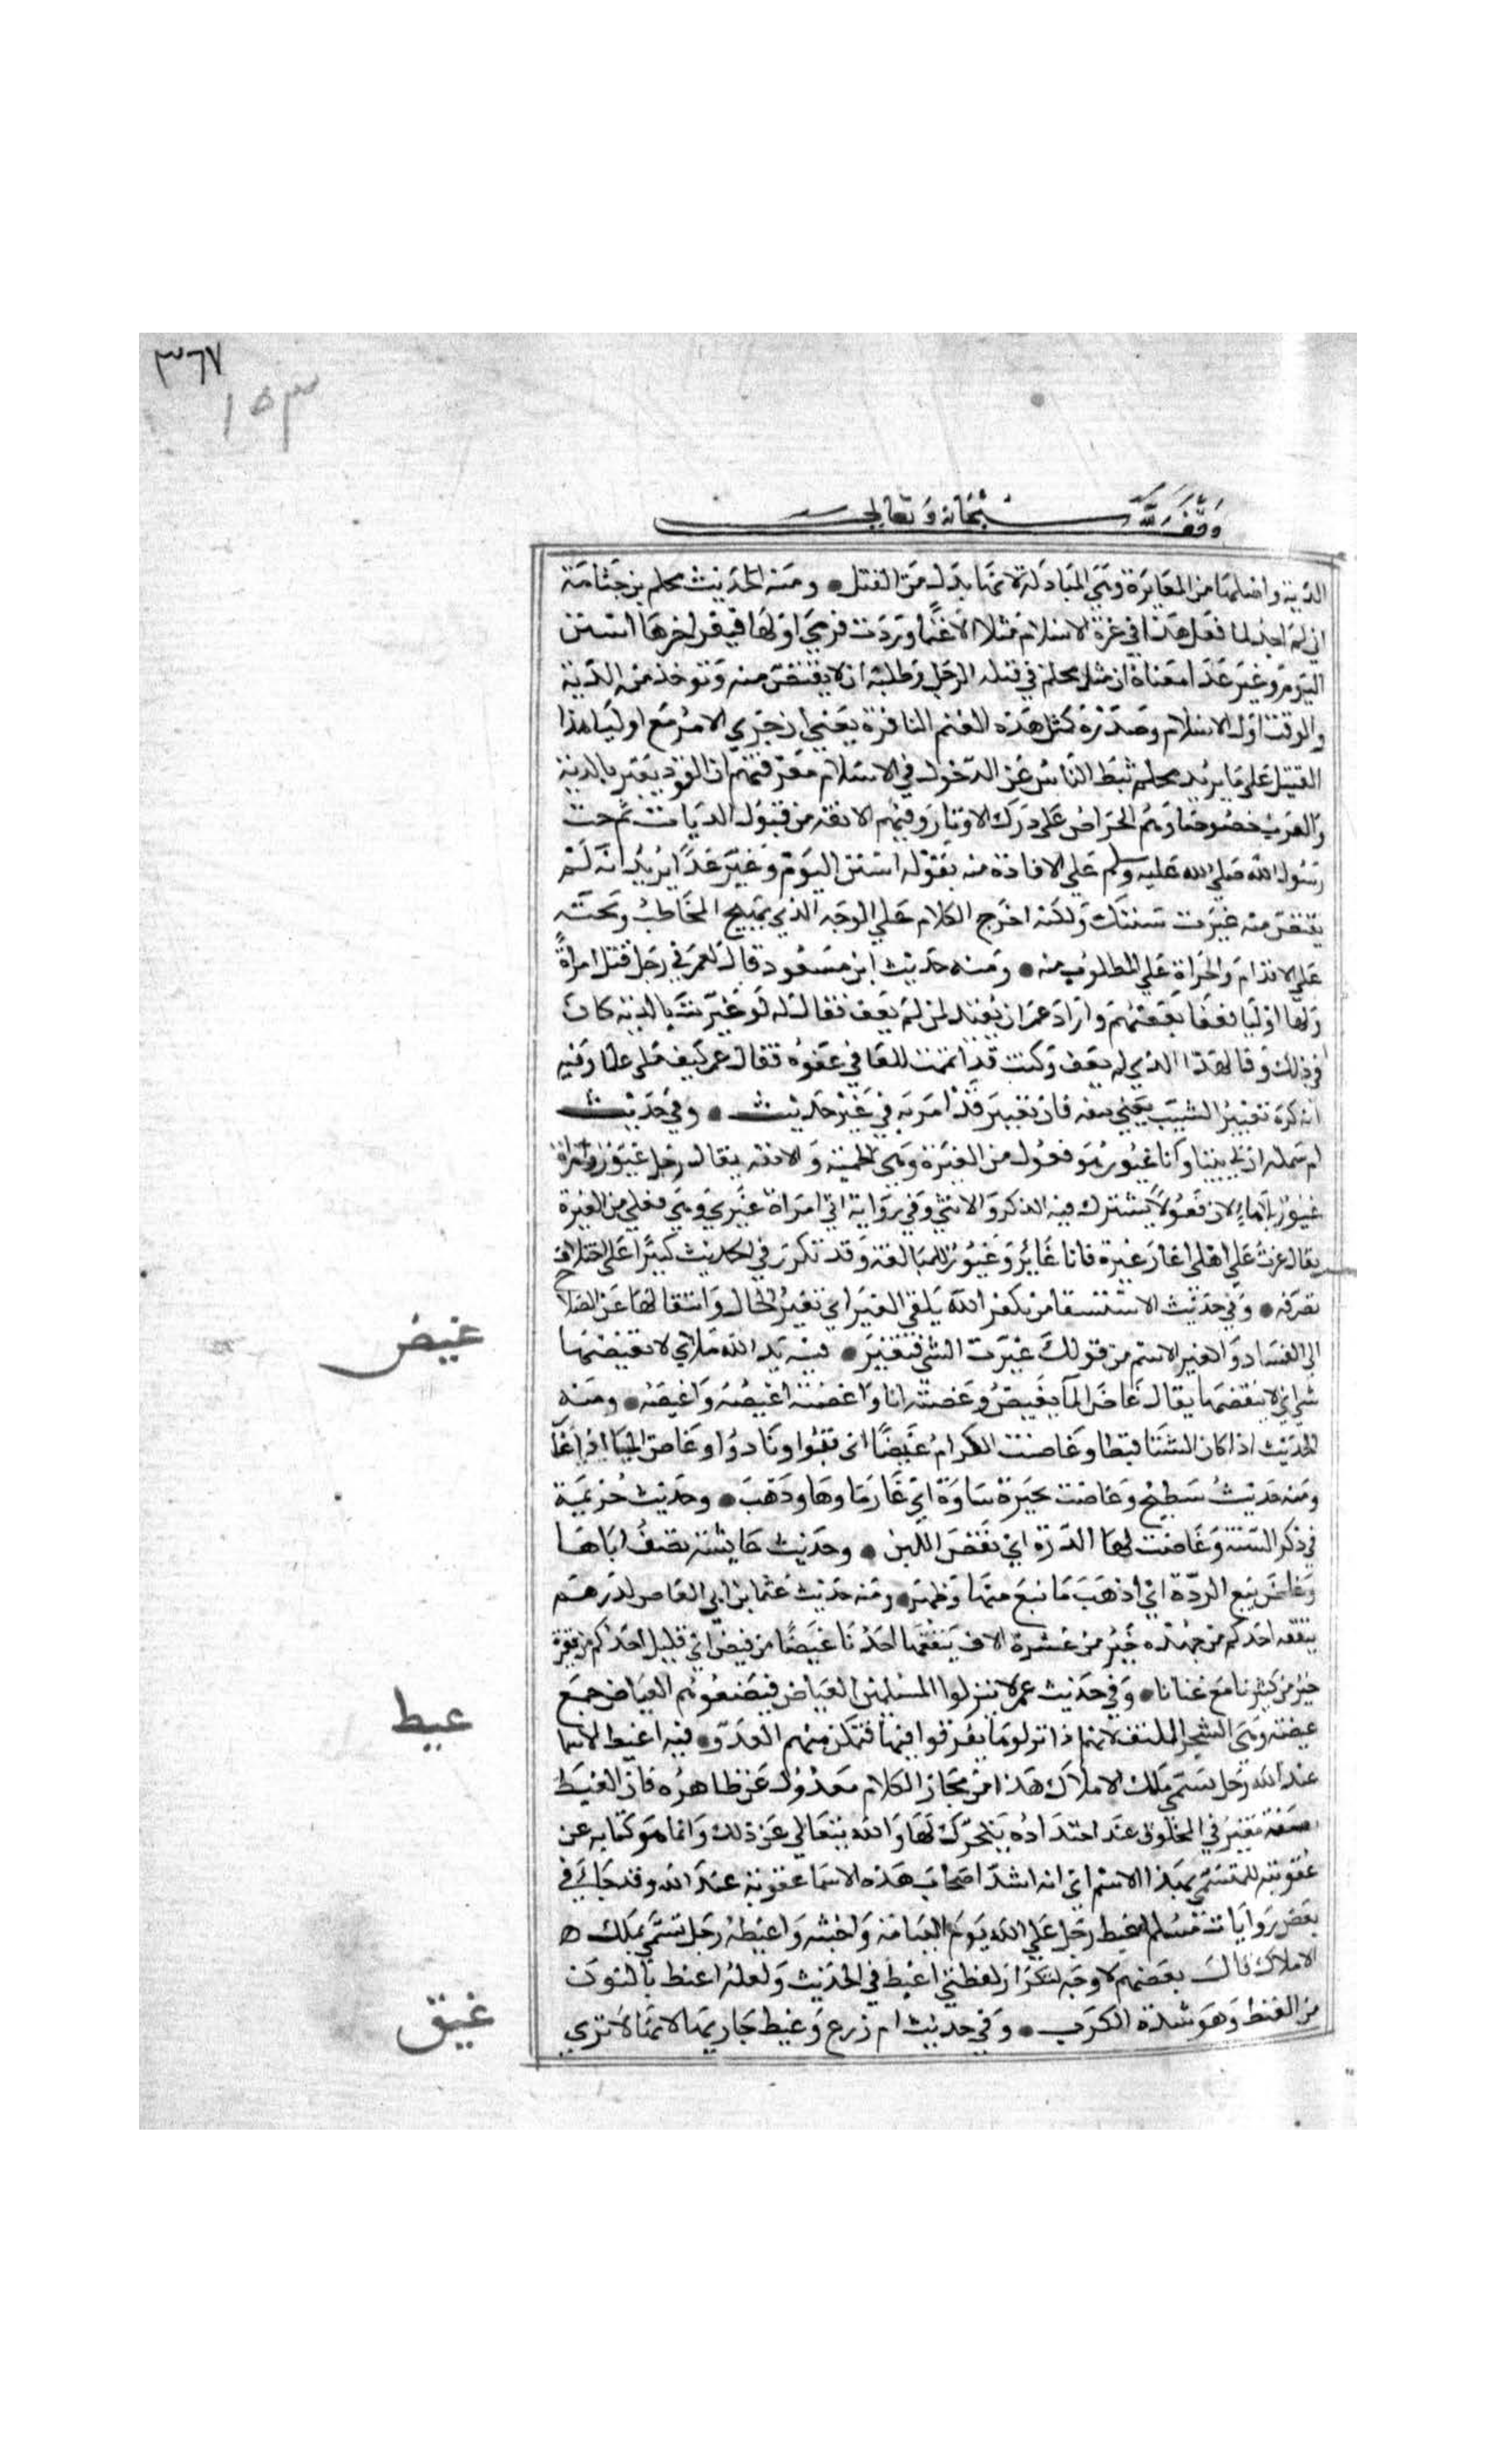 ٣٦٧
١٥٣
وقف لله سبحانه وتعالى
الدية واصلها من المغايرة وهي المبادلة لانها بدل من القتل ومنه الحديث محلم بن جثامة
اني لم اجد لما فعل هذا في غرة الاسلام مثلا الا غنما وردت فرمي اولها فنفر اخرها اسنن
اليوم وغير غدا معناه ان مثل محلم في قتله الرجل وطلبه ان لا يقتص منه وتوخذ منه الدية
والوقت اول الاسلام وصدره كمثل هذه الغنم النافرة يعني ان جري الامر مع اوليا هذا
القتيل على ما يريد محلم ثبط الناس عن الدخول في الاسلام معرفتهم ان القود يغير بالدية
والعرب خصوصا وهم الحراص على درك الاوتار وفيهم الانفة من قبول الديات ثم حث
رسول الله صلى الله عليه وسلم علي الاقادة منه بقوله اسنن اليوم وغير غدا يريد انه لم
يقتص منه غيرت سنتك ولكنه اخرج الكلام علي الوجه الذي يهيج المخاطب ويحثه
على الاقدام والجراة علي المطلوب منه ومنه حديث ابن مسعود قال لعمر في رجل قتل امراة
ولها اوليا فعفا بعضهم واراد عمر ان يقيد لمن لم يعف فقال له لو غيرت بالدية كان
في ذلك وفا لهذا الذي لم يعف وكنت قد اتممت للعافي عفوه فقال عمر كنيف ملي علما وفيه
انه كره تغيير الشيب يعني نتفه فان تغييره قد امر به في غير حديث وفي حديث
ام سلمة ان لي بنتا وانا غيور هو فعول من الغيرة وهي الحمية والانفة يقال رجل غيور وامراة
غيور بلا هاء لان فعولا يشترك فيه الذكر والانثي وفي رواية اني امراة غيري وهي فعلي من الغيرة
يقال غرت على اهلى اغار غيرة فانا غائر وغيور للمبالغة وقد تكرر في الحديث كثيرا على اختلاف
تصرفه وفي حديث الاستسقا من يكفر الله يلق الغير اي تغير الحال وانتقالها عن الصلاح
الى الفساد والغير الاسم من قولك غيرت الشي فتغير فيه يد الله ملاي لا يغيضها
غيض
شي اي لا ينقصها يقال غاض الما يغيض وغضته انا واغضته اغيضه واغيضه ومنه
الحديث اذا كان الشتا قيظا وغاضت الكرام غيضا اي فنوا وبادوا وغاض الما اذا غار
ومنه حديث سطيح وغاضت بحيرة ساوة اي غار ماوها وذهب وحديث خزيمة
في ذكر السنة وغاضت لها الدرة اي نقص اللبن وحديث عايشة تصف اباها
وغاض نبع الردة اي اذهب ما نبع منها وظهر ومنه حديث عثمان بن ابي العاص لدرهم
ينفقه احدكم من جهده خير من عشرة الاف ينفقها احدنا غيضا من فيض اي قليل احدكم مع فقره
خير من كثيرنا مع غنانا وفي حديث عمر لا تنزلوا المسلمين الغياض فيضيعوهم الغياض جمع
غيضة وهي الشجر الملتف لانهم اذا نزلوها تفرقوا فيها فتمكن منهم العدو فيه اغيظ الاسما
عيط
عند الله رجل تسمي ملك الاملاك هذا من مجاز الكلام معدول عن ظاهره فان الغيظ
صفة تغير في المخلوق عند احتداده يتحرك لها والله يتعالي عن ذلك وانما هو كناية عن
عقوبته للمتسمي بهذا الاسم اي انه اشد اصحاب هذه الاسما عقوبة عند الله وقد جا في
بعض روايات مسلم اغيظ رجل علي الله يوم القيامة واخبثه واغيظه رجل تسمي بملك
الاملاك قال بعضهم لا وجه لتكرار لفظتي اغيظ في الحديث ولعله اغنط بالنون
من الغنط وهو شدة الكرب وفي حديث ام زرع وغيظ جارتها لانها لا تري
غيق